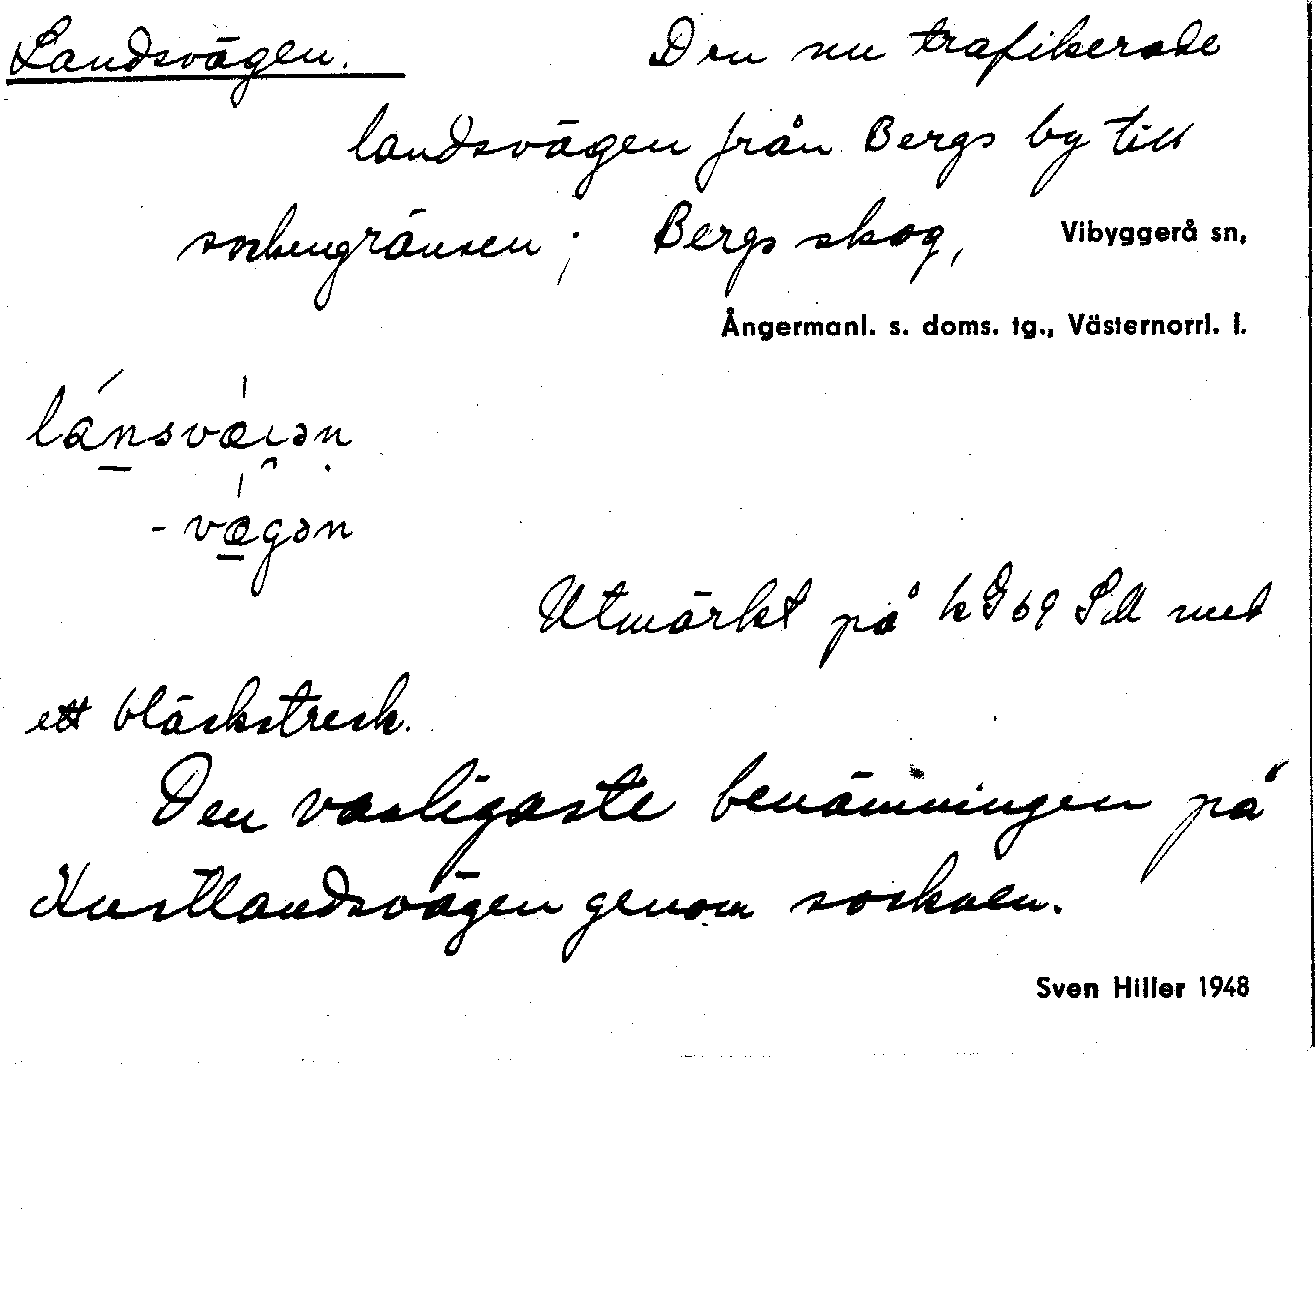 Landsvägen. Den nu trafikerade
landsvägen från Bergs by till
sockengränsen; Bergs skog, Vibyggerå sn,
Ångermanl. s. doms. tg., Västernorrl. l.
lánsvæ̀ıən
-vǽgən
Utmärkt på kG69 SM med
ett bläckstreck.
Den vanligaste benämningen på
Kustlandsvägen genom socknen.
Sven Hiller 1948